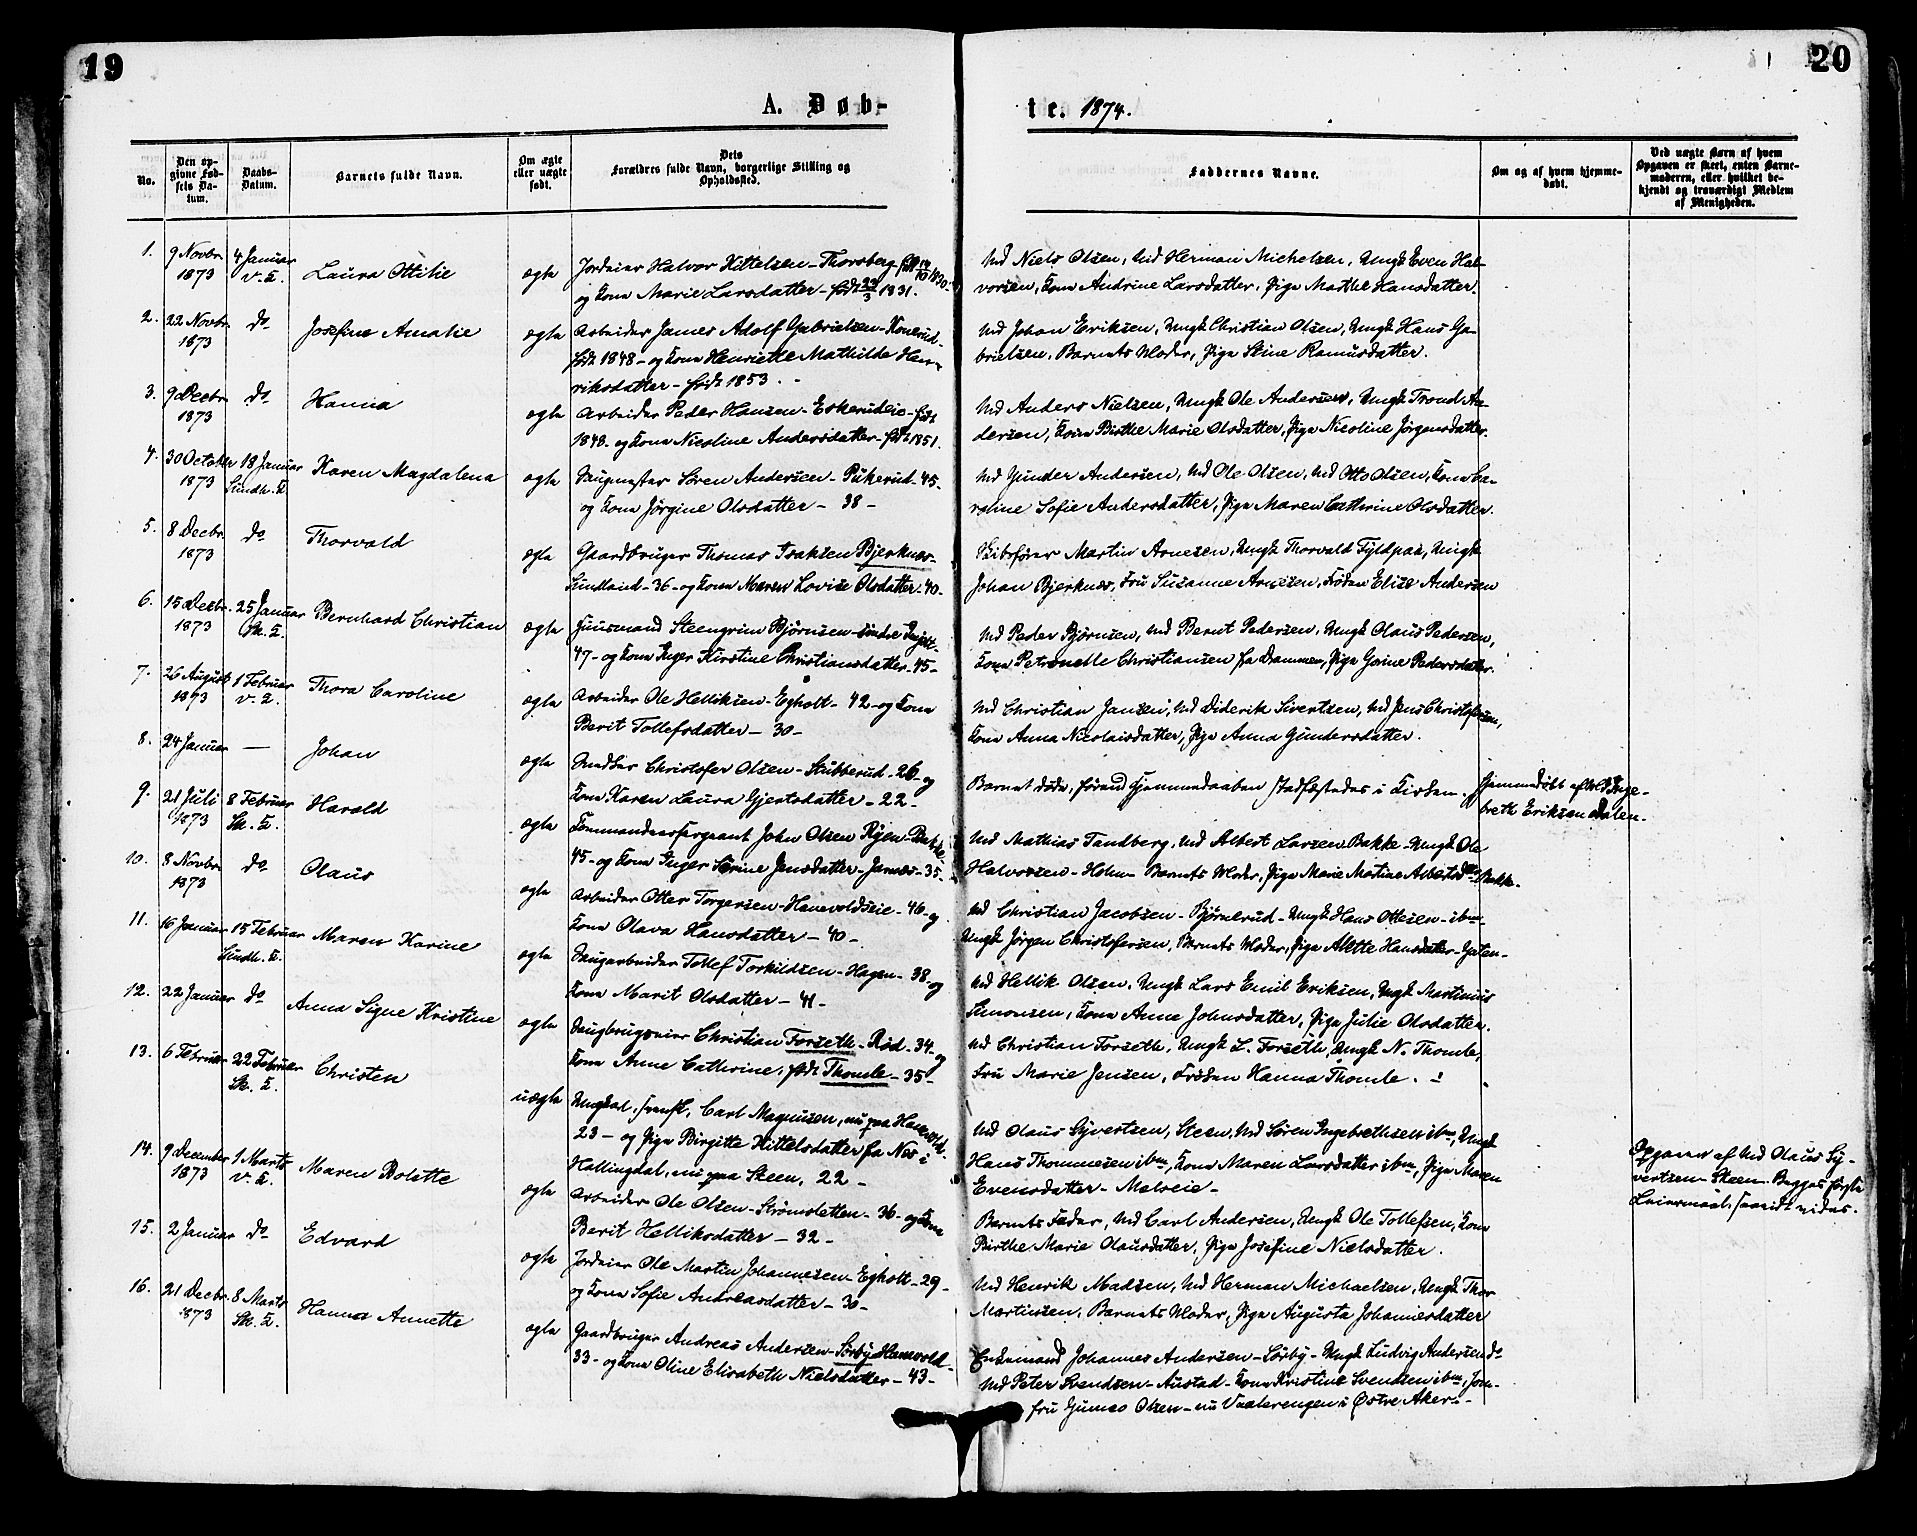 19
20
A. Døb-
te. 1874.
No.
Den op-
givne Fød-
sels Da-
tum.
Daabs-
Datum.
Barnets fulde Navn.
Om ægte
eller uægte
født.
Dets
Forældres fulde Navn, borgerlige Stilling og
Opholdssted.
Faddernes Navne.
Om og af hvem hjemme-
døbt.
Ved uægte Børn af hvem
Opgaven er skeet, enten Barne-
moderen, eller hvilket be-
kjendt og troværdigt Medlem
af Menigheden.
1. 9 Novbr. 1873 4 Januar V. K. Laura Ottilie ægte
Jordeier Halvor Kittelsen - Thorsberg
og Kona Marie Larsdatter - født 29/3 1831.
Md Niels Olsen, Md Herman Michelsen, Ungk Even Hal-
vorsen, Kona Andrine Larsdatter, Pige Marthe Hansdatter.
2. 22 Novbr. 1873 do Josefine Amalie ægte
Arbeider James Adolf Gabrielsen - Konerud -
født 1848 - og Kona Henriette Mathilde Hen-
riksdatter - født 1853. -
Md Johan Eriksen, Ungk Christian Olsen, Ungk Hans Ga-
brielsen, Barnets Moder, Pige Stine Ramusdatter.
3. 9 Decbr. 1873 do Hanna ægte
Arbeider Peder Hansen - Eskerudeie - født
1848. og Kona Nicoline Andersdatter - født 1851.
Md Anders Nielsen, Ungk Ole Andersen, Ungk Trond An-
dersen, Kona Birthe Marie Olsdatter, Pige Nicoline Jørgensdatter.
4. 30 October 1873 18 Januar Lindh. K. Karen Magdalena ægte
Saugmester Søren Andersen - Pukerud - 45 -
og Kona Jørgine Olsdatter - 38 -
Md Gunder Andersen, Md Ole Olsen, Md Otto Olsen, Kona Ca-
roline Sofie Andersdatter, Pige Maren Cathrine Olsdatter.
5. 8 Decbr. 1873 do Thorvald ægte
Gaardbruger Thomas Isaksen Bjerknes -
Lindland - 36 - og Kona Maren Lovise Olsdatter - 40 -
Skibsfører Martin Arnesen, Ungk Thorvald Fyldpaa, Ungk
Johan Bjerknes, Fru Susanne Arnesen, Frøken Elise Andersen
6. 15 Decbr. 1873 25 Januar Sk. K. Bernhard Christian ægte
Huusmand Steengrim Bjørnsen - Søndre
47 - og Kona Inger Kirstine Christiansdatter - 45 -
Md Peder Bjørnsen, Md Bernt Pedersen, Ungk Olaus Pedersen,
Kona Petronelle Christiansen fra Drammen, Pige Gorine Pedersdatter.
7. 26 August 1873 1 Februar V. K. Thora Caroline ægte
Arbeider Ole Helliksen - Egholt - 42 - og Kona
Berit Tollefsdatter - 30 -
Md Christian Jansen, Md Diderik Sivertsen, Md Jens Christofersen,
Kona Anna Nicolaisdatter, Pige Anna Gundersdatter.
8. 24 Januar — Johan ægte
Snedker Christofer Olsen - Stubberud - 26 - og
Kona Karen Laura Gjertsdatter - 22 -
Barnet døde, førend Hjemmedaaben stadfæstedes i Kirken.
Hjemmedøbt af Md Inge-
breth Eriksen Dalen.
9. 21 Juli 1873 8 Februar Sk. K. Harald ægte
Kommandeersergeant John Olsen Ryen -
45 - og Kona Inger Serine Jensdatter - - 35 -
Md Mathias Tandberg, Md Albert Larsen Bakke - Ungk Ole
Halvorsen - Holm - Barnets Moder, Pige Marie Martine Albertsdtr - Bakke.
10. 8 Novbr. 1873 do Olaus ægte
Arbeider Otter Torgersen - Hanevoldseie - 46 - og
Kona Olava Hansdatter - 40 -
Md Christian Jacobsen - Bjørnerud - Ungk Hans Ottesen - ibm
Ungk Jørgen Christofersen, Barnets Moder, Pige Alette Hansdatter -
11. 16 Januar 15 Februar Lindh. K. Maren Karine ægte
Saugarbeider Tollef Torkildsen - Hagen - 38 - og
Kona Marit Olsdatter - 41 -
Md Hellik Olsen, Ungk Lars Emil Eriksen, Ungk Martinius
Simonsen, Kona Anne Johnsdatter, Pige Julie Olsdatter.
12. 22 Januar do Anna Signe Kristine ægte
Saugbrugseier Christian Forseth - Rød - 34 - og
Kona Anne Cathrine, født Thomle - 35 -
Md Christian Forseth, Ungk L. Forseth, Ungk N. Thomle,
Fru Marie Jensen, Frøken Hanna Thomle.
13. 6 Februar 22 Februar Sk. K. Christen uægte
Ungkarl, svensk, Carl Magnusen, nu paa Hanevold.
23 - og Pige Birgitte Kittelsdatter fra Nes i
Hallingdal, nu paa Skeen, 22 -
Md Olaus Syvertsen, Steen, Md Søren Ingebrethsen ibm, Ungk
Hans Thommesen ibm, Kona Maren Larsdatter ibm, Pige Maren
Evensdatter -
Opgaven af Md Olaus Sy-
vertsen Skeen. Begges første
Leiermaal, saavidt vides.
14. 9 December 1873 1 Marts V. K. Maren Bolette ægte
Arbeider Ole Olsen - Strømsletten - 36 - og Kona
Berit Helliksdatter - 32 -
Barnets Fader, Md Carl Andersen, Ungk Ole Tollefsen, Kona
Birthe Marie Olausdatter, Pige Josefine Nielsdatter.
15. 2 Januar do Edvard ægte
Jordeier Ole Martin Johannesen - Egholt - 29 -
og Kona Sofie Andreasdatter - 30 -
Md Henrik Madsen, Md Herman Michaelsen, Ungk Thor
Martinsen, Barnets Moder, Pige Augusta Johannesdatter
16. 21 Decbr. 1873 8 Marts Sk. K. Hanna Annette ægte
Gaardbruger Andreas Andersen - Sørby - Hanevold -
33 - og Kona Oline Elisabeth Nielsdatter - 43 -
Enkemand Johannes Andersen - Sørby - Ungk Ludvig Andersen do
Md Peter Svendsen - Austad - Kona Kristine Svendsen ibm, Jom-
fru Olsen - nu Vaalerengen i Østre Aker -